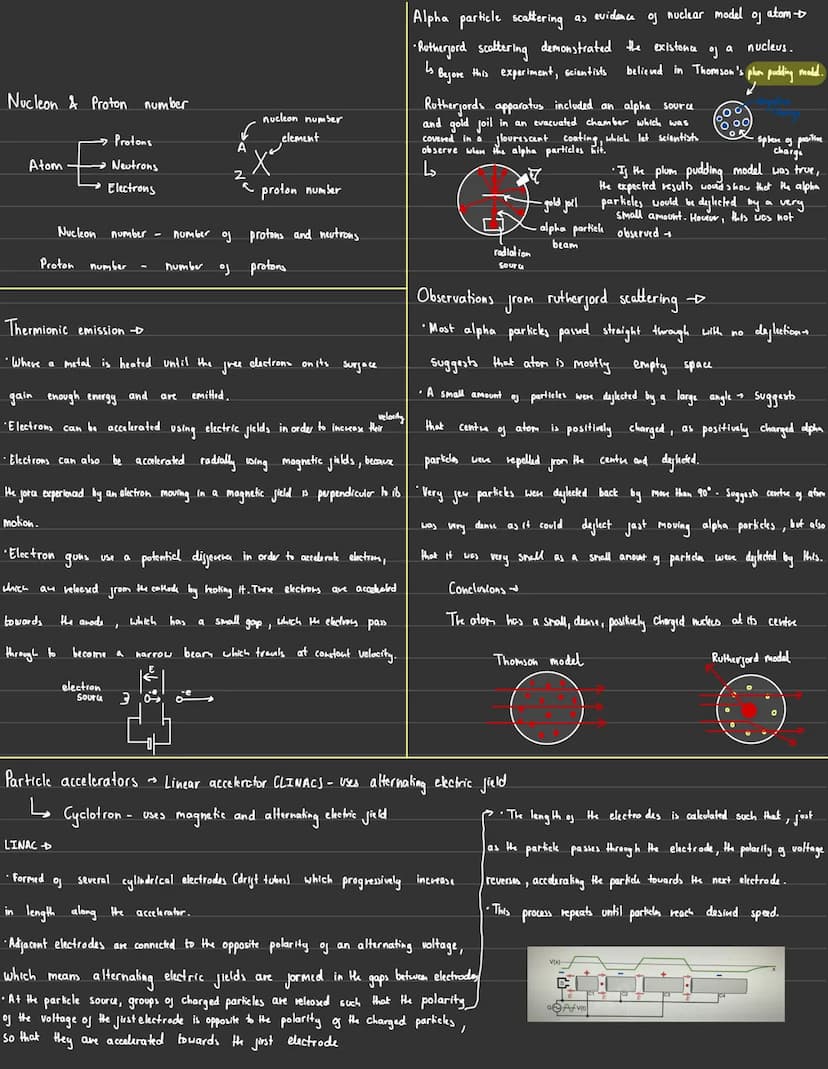 Nucleon & Proton number
nucleon number
A
element
X
Z
proton number
Atom
Protons
Neutrons
Electrons
Nucleon number - number of protons and neutrons
Proton number - number of protons
Alpha particle scattering as evidence of nuclear model of atom →
• Rutherford scattering demonstrated the existence of a nucleus.
↳ Before this experiment, scientists believed in Thomson's plum pudding model.
Rutherfords apparatus included an alpha source
and gold foil in an evacuated chamber which was
covered in a flourescent coating, which let scientists
observe when the alpha particles hit.
sphere of positive
charge
gold foil
alpha particle
beam
radiation
source
• If the plum pudding model was true,
the expected results would show that the alpha
particles would be deflected by a very
small amount. However, this was not
observed →
Thermionic emission →
• Where a metal is heated until the free electrons on its surface
gain enough energy and are emitted.
• Electrons can be accelerated using electric fields in order to increase their velocity
• Electrons can also be accelerated radially using magnetic fields, because
the force experienced by an electron moving in a magnetic field is perpendicular to its
motion.
• Electron guns use a potential difference in order to accelerate electrons,
which are released from the cathode by heating it. These electrons are accelerated
towards the anode, which has a small gap, which the electrons pass
through to become a narrow beam which travels at constant velocity.
E
electron
source
-e
-e
Observations from rutherford scattering →
• Most alpha particles passed straight through with no deflection →
suggests that atom is mostly empty space
• A small amount of particles were deflected by a large angle → suggests
that centre of atom is positively charged, as positively charged alpha
particles were repelled from the centre and deflected.
• Very few particles were deflected back by more than 90° - suggests centre of atom
was very dense as it could deflect fast moving alpha particles, but also
that it was very small as a small amount of particles were deflected by this.
Conclusions →
The atom has a small, dense, positively charged nucleus at its centre
Thomson model
Rutherford model
Particle accelerators → Linear accelerator (LINACs) - uses alternating electric field
↳ Cyclotron - uses magnetic and alternating electric field
LINAC →
• Formed of several cylindrical electrodes (drift tubes) which progressively increase
in length along the accelerator.
• Adjacent electrodes are connected to the opposite polarity of an alternating voltage,
which means alternating electric fields are formed in the gaps between electrodes
• At the particle source, groups of charged particles are released such that the polarity
of the voltage of the first electrode is opposite to the polarity of the charged particles,
so that they are accelerated towards the first electrode
• The length of the electrodes is calculated such that, just
as the particle passes through the electrode, the polarity of voltage
reverses, accelerating the particle towards the next electrode.
• This process repeats until particles reach desired speed.
V(x)
x
+ - + -
E E E E
C1 C2 C3 C4
V(t)